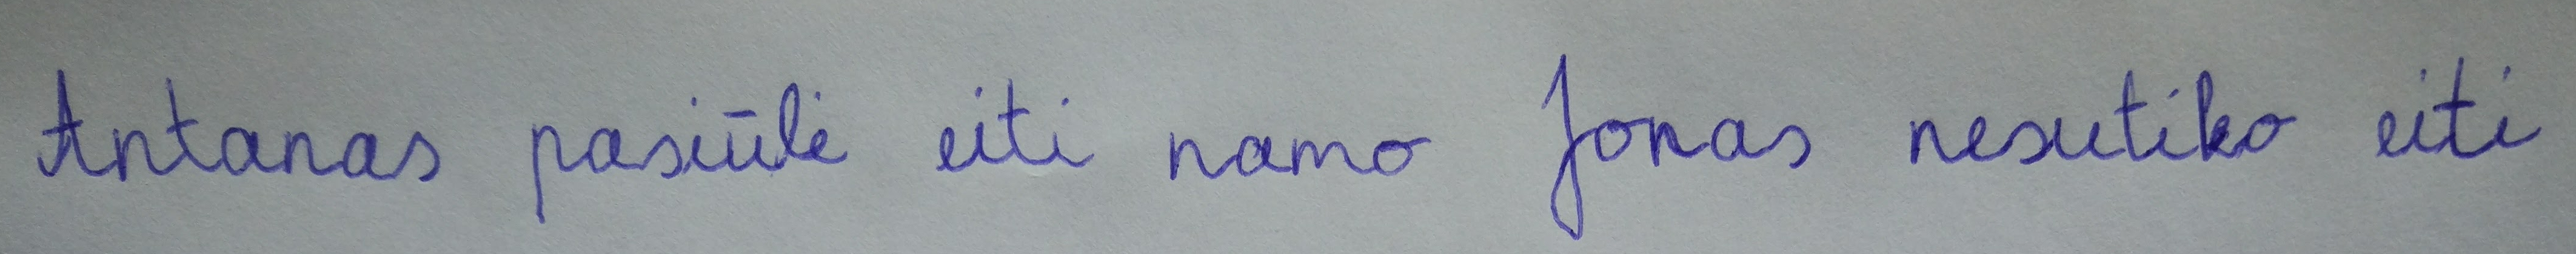 Antanas pasiūlė eiti namo Jonas nesutiko eiti